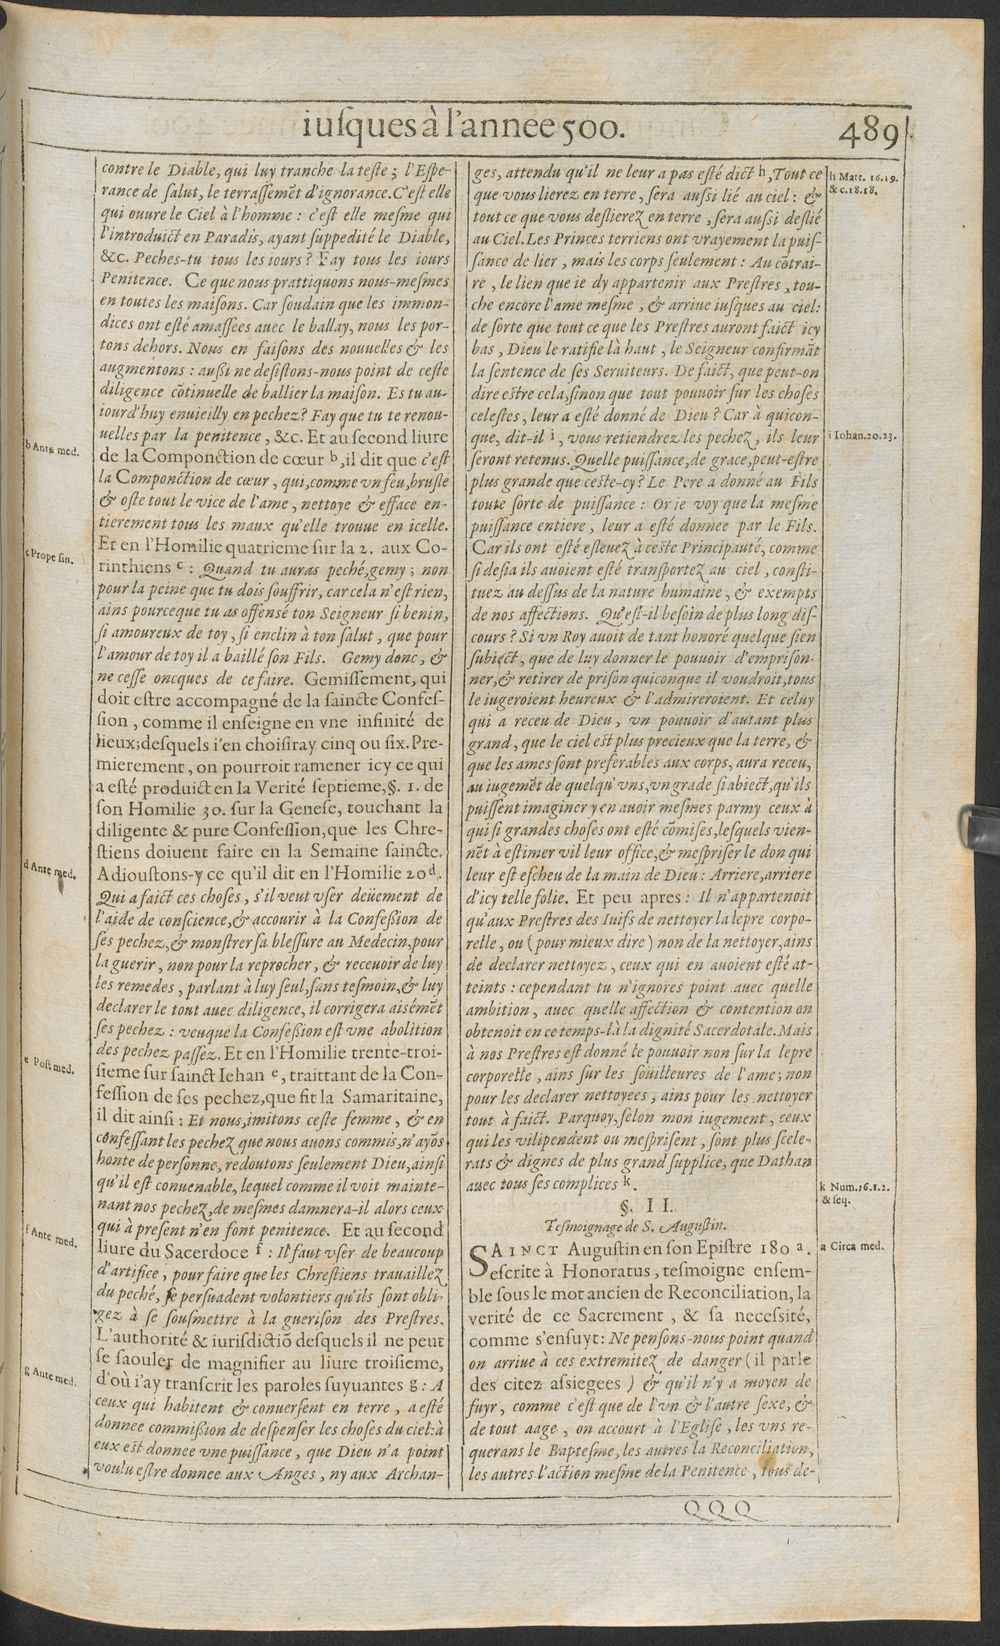 iusques à l'annee 500.
489
contre le Diable, qui luy tranche la teste; l'Espe-
rance de salut, le terrassemẽt d'ignorance. C'est elle
qui ouure le Ciel à l'homme : c'est elle mesme qui
l'introduict en Paradis, ayant suppedité le Diable,
&c. Peches-tu tous les iours? Fay tous les iours
Penitence. Ce que nous prattiquons nous-mesmes
en toutes les maisons. Car soudain que les immon-
dices ont esté amassées auec le ballay, nous les por-
tons dehors. Nous en faisons des nouuelles & les
augmentons : aussi ne desistons-nous point de ceste
diligence cõtinuelle de ballier la maison. Es tu au-
iourd'huy enuieilly en pechez? Fay que tu te renou-
uelles par la penitence, &c. Et au second liure
b Ante med.
de la Componction de cœur b, il dit que c'est
la Componction de cœur, qui, comme vn feu, brusle
& oste tout le vice de l'ame, nettoye & efface en-
tierement tous les maux qu'elle trouue en icelle.
Et en l'Homilie quatrieme sur la 2. aux Co-
c Prope fin.
rinthiens c : Quand tu auras peché, gemy; non
pour la peine que tu dois souffrir, car cela n'est rien,
ains pource que tu as offensé ton Seigneur si benin,
si amoureux de toy, si enclin à ton salut, que pour
l'amour de toy il a baillé son Fils. Gemy donc, &
ne cesse oncques de ce faire. Gemissement, qui
doit estre accompagné de la saincte Confes-
sion, comme il enseigne en vne infinité de
lieux; desquels i'en choisiray cinq ou six. Pre-
mierement, on pourroit ramener icy ce qui
a esté produict en la Verité septieme, §. 1. de
son Homilie 30. sur la Genese, touchant la
diligente & pure Confession, que les Chre-
stiens doiuent faire en la Semaine saincte.
d Ante med.
Adioustons-y ce qu'il dit en l'Homilie 20 d.
Qui a faict ces choses, s'il veut vser deüement de
l'aide de conscience, & accourir à la Confession de
ses pechez, & monstrer sa blessure au Medecin, pour
la guerir, non pour la reprocher, & receuoir de luy
les remedes, parlant à luy seul, sans tesmoin, & luy
declarer le tout auec diligence, il corrigera aisémẽt
ses pechez : veu que la Confession est vne abolition
des pechez passez. Et en l'Homilie trente-troi-
e Post med.
sieme sur sainct Iehan e, traittant de la Con-
fession de ses pechez, que fit la Samaritaine,
il dit ainsi : Et nous, imitons ceste femme, & en
confessant les pechez que nous auons commis, n'ayõs
honte de personne, redoutons seulement Dieu, ainsi
qu'il est conuenable, lequel comme il voit mainte-
nant nos pechez, de mesmes damnera-il alors ceux
qui à present n'en font penitence. Et au second
f Ante med.
liure du Sacerdoce f : Il faut vser de beaucoup
d'artifice, pour faire que les Chrestiens trauaillez
du peché, se persuadent volontiers qu'ils sont obli-
gez à se sousmettre à la guerison des Prestres.
L'authorité & iurisdictiõ desquels il ne peut
se saouler de magnifier au liure troisieme,
g Ante med.
d'où i'ay transcrit les paroles suyuantes g : A
ceux qui habitent & conuersent en terre, a esté
donnee commission de despenser les choses du ciel: à
eux est donnee vne puissance, que Dieu n'a point
voulu estre donnee aux Anges, ny aux Archan-
ges, attendu qu'il ne leur a pas esté dict h, Tout ce
h Matt. 16.19.
& c.18.18.
que vous lierez en terre, sera aussi lié au ciel : &
tout ce que vous deslierez en terre, sera aussi deslié
au Ciel. Les Princes terriens ont vrayement la puis-
sance de lier, mais les corps seulement : Au cõtrai-
re, le lien que ie dy appartenir aux Prestres, tou-
che encore l'ame mesme, & arriue iusques au ciel:
de sorte que tout ce que les Prestres auront faict icy
bas, Dieu le ratifie là haut, le Seigneur confirmãt
la sentence de ses Seruiteurs. De faict, que peut-on
dire estre cela, sinon que tout pouuoir sur les choses
celestes, leur a esté donné de Dieu? Car à quicon-
que, dit-il i, vous retiendrez les pechez, ils leur
i Iohan. 20.23.
seront retenus. Quelle puissance, de grace, peut-estre
plus grande que ceste-cy? Le Pere a donné au Fils
toute sorte de puissance : Or ie voy que la mesme
puissance entiere, leur a esté donnee par le Fils.
Car ils ont esté esleuez à ceste Principauté, comme
si desia ils auoient esté transportez au ciel, consti-
tuez au dessus de la nature humaine, & exempts
de nos affections. Qu'est-il besoin de plus long dis-
cours? Si vn Roy auoit de tant honoré quelque sien
subiect, que de luy donner le pouuoir d'emprison-
ner, & retirer de prison quiconque il voudroit, tous
le iugeroient heureux & l'admireroient. Et celuy
qui a receu de Dieu, vn pouuoir d'autant plus
grand, que le ciel est plus precieux que la terre, &
que les ames sont preferables aux corps, aura receu,
au iugemẽt de quelqu'vns, vn grade si abiect, qu'ils
puissent imaginer y en auoir mesmes parmy ceux à
qui si grandes choses ont esté cõmises, lesquels vien-
nẽt à estimer vil leur office, & mespriser le don qui
leur est escheu de la main de Dieu : Arriere, arriere
d'icy telle folie. Et peu apres : Il n'appartenoit
qu'aux Prestres des Iuifs de nettoyer la lepre corpo-
relle, ou (pour mieux dire) non de la nettoyer, ains
de declarer nettoyez, ceux qui en auoient esté at-
teints : cependant tu n'ignores point auec quelle
ambition, auec quelle affection & contention on
obtenoit en ce temps-là la dignité Sacerdotale. Mais
à nos Prestres est donné le pouuoir non sur la lepre
corporelle, ains sur les soüilleures de l'ame; non
pour les declarer nettoyees, ains pour les nettoyer
tout à faict. Parquoy, selon mon iugement, ceux
qui les vilipendent ou mesprisent, sont plus scele-
rats & dignes de plus grand supplice, que Dathan
auec tous ses complices k.
k Num. 16.1.2.
& seq.
§. II.
Tesmoignage de S. Augustin.
SAINCT Augustin en son Epistre 180 a.
a Circa med.
escrite à Honoratus, tesmoigne ensem-
ble sous le mot ancien de Reconciliation, la
verité de ce Sacrement, & sa necessité,
comme s'ensuyt: Ne pensons-nous point quand
on arriue à ces extremitez de danger (il parle
des citez assiegees) & qu'il n'y a moyen de
fuyr, comme c'est que de l'vn & l'autre sexe, &
de tout aage, on accourt à l'Eglise, les vns re-
querans le Baptesme, les autres la Reconciliation,
les autres l'action mesme de la Penitence, tous de-
QQQ